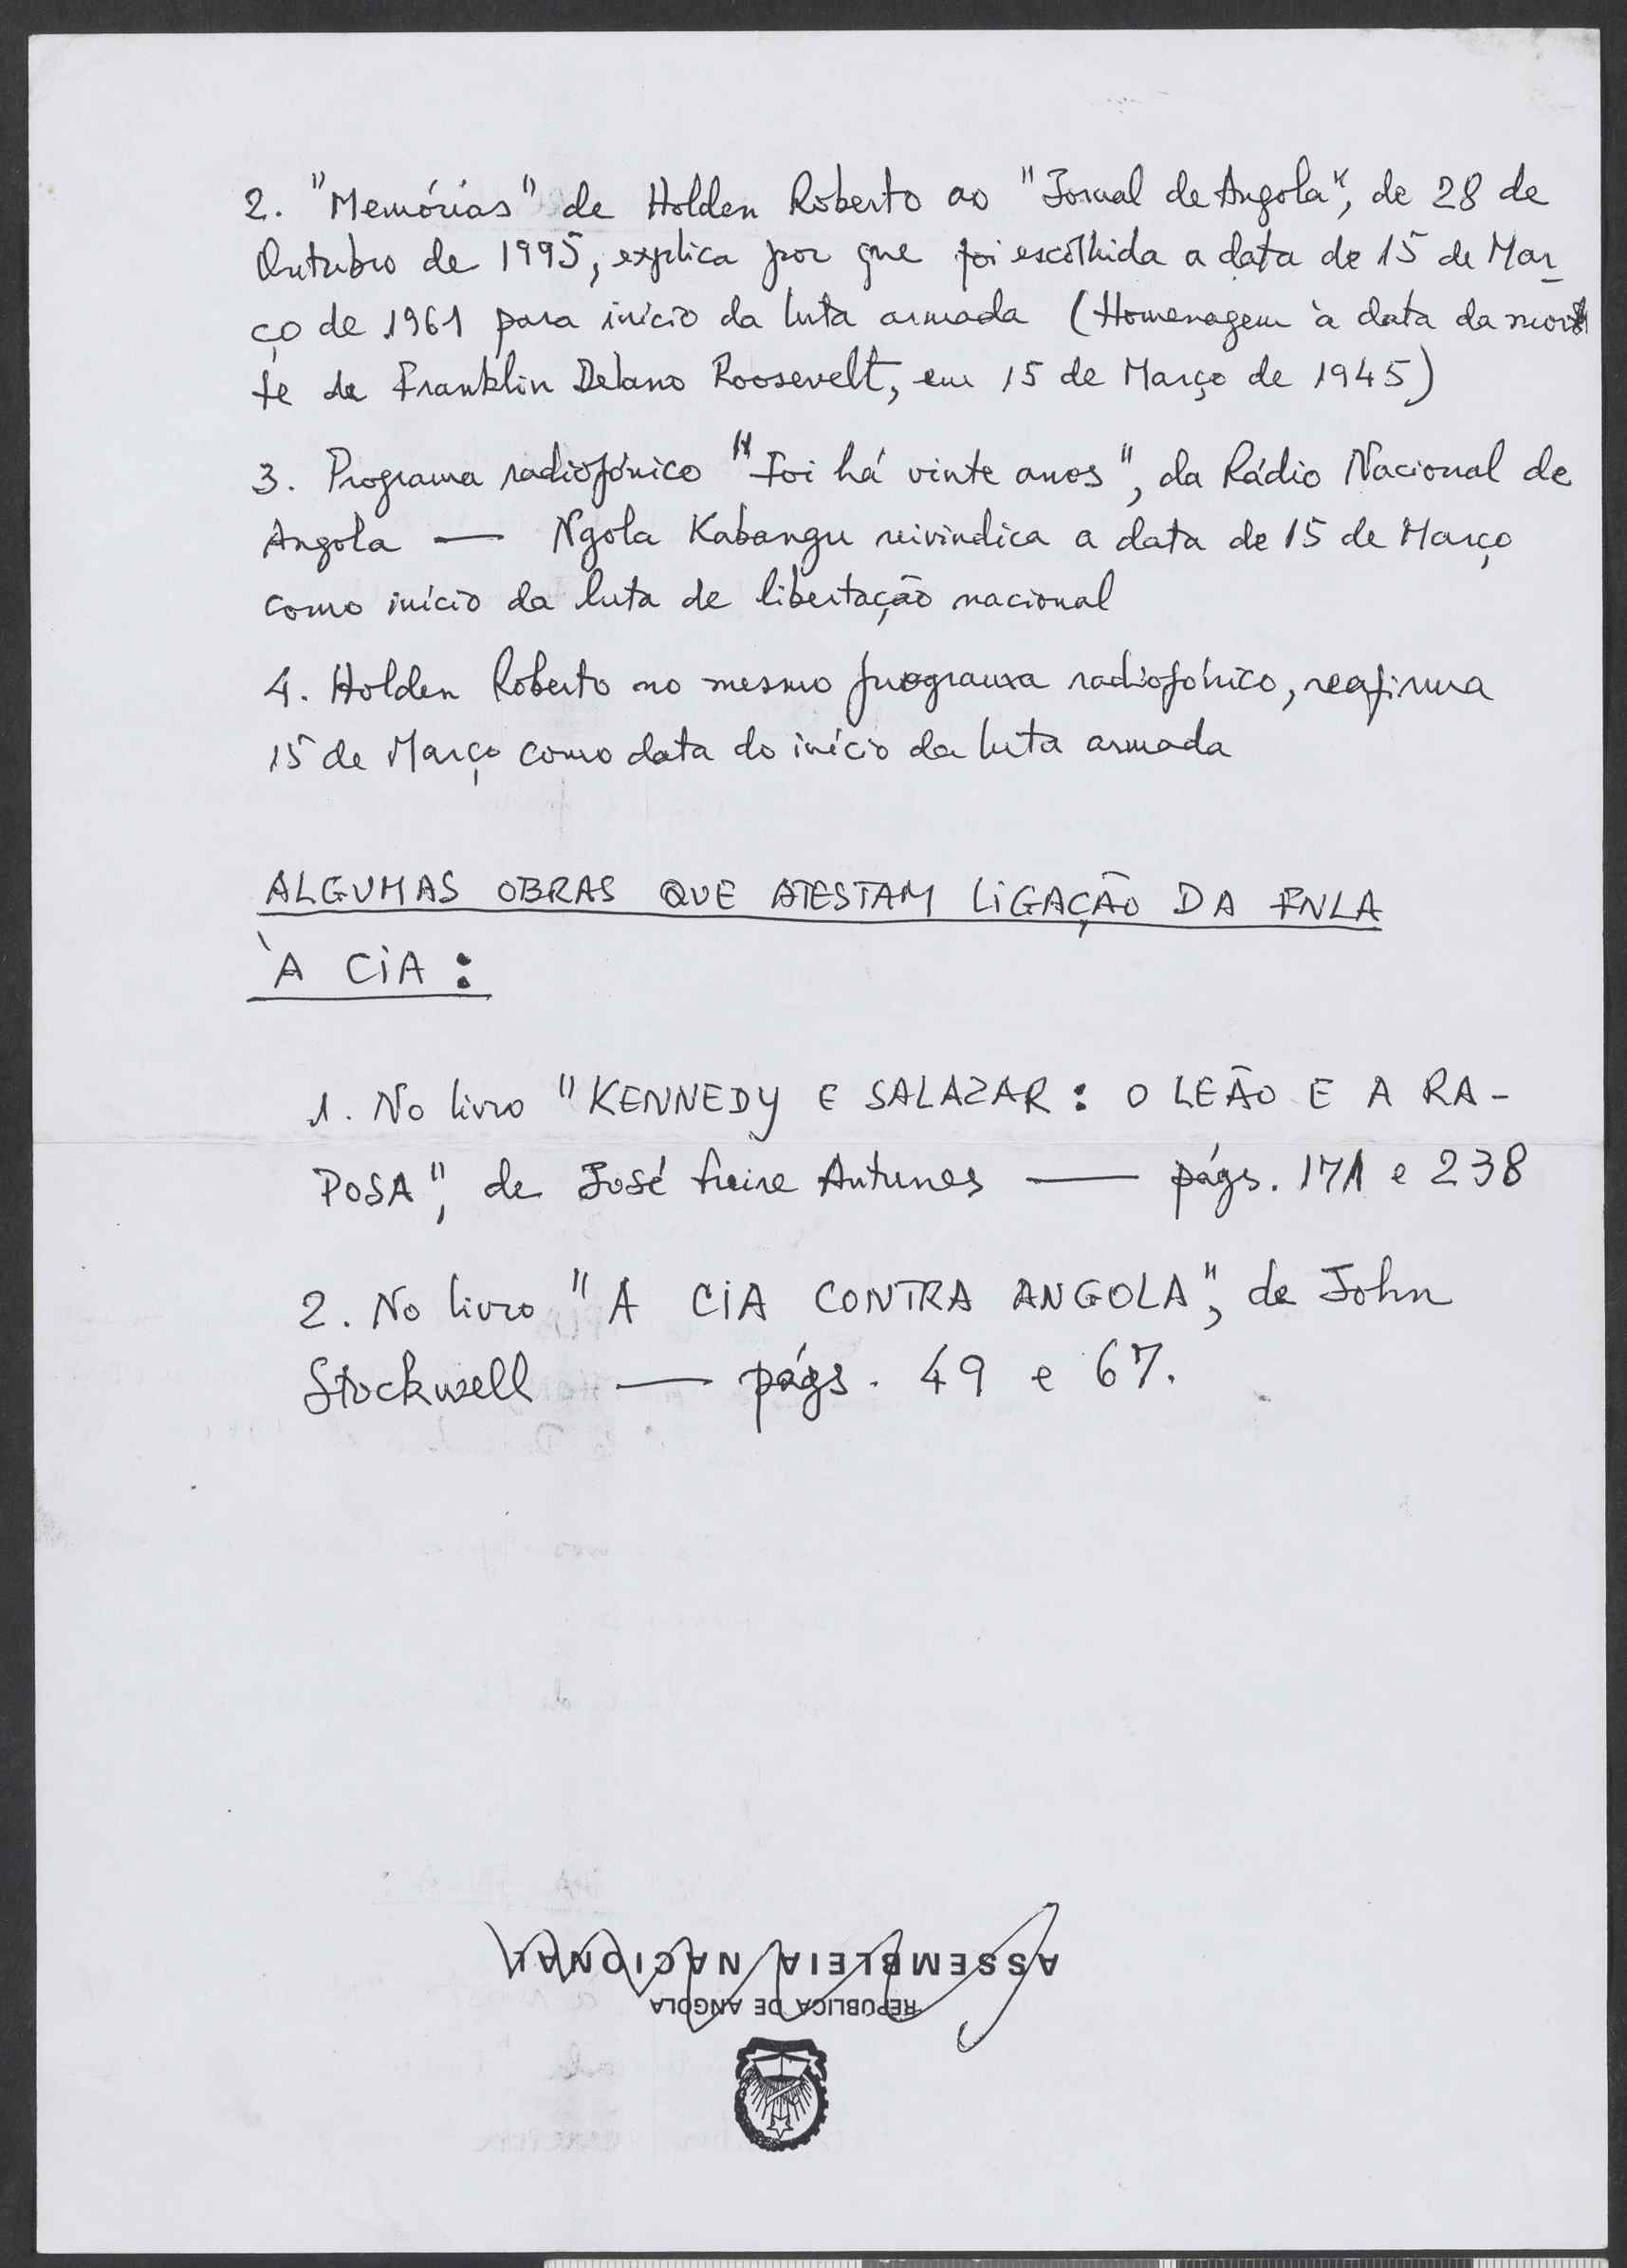 2. "Memórias" de Holden Roberto ao "Jornal de Angola", de 28 de
Outubro de 1995, explica por que foi escolhida a data de 15 de Mar-
ço de 1961 para início da luta armada (Homenagem à data da mor
te de Franklin Delano Roosevelt, em 15 de Março de 1945)
3. Programa radiofónico "Foi há vinte anos", da Rádio Nacional de
Angola — Ngola Kabangu reivindica a data de 15 de Março
como início da luta de libertação nacional
4. Holden Roberto no mesmo programa radiofónico, reafirma
15 de Março como data do início da luta armada
ALGUMAS OBRAS QUE ATESTAM LIGAÇÃO DA FNLA
À CIA:
1. No livro "KENNEDY E SALAZAR: O LEÃO E A RA-
POSA", de José Freire Antunes — págs. 171 e 238
2. No livro "A CIA CONTRA ANGOLA", de John
Stockwell — págs. 49 e 67.
ASSEMBLEIA NACIONAL
REPÚBLICA DE ANGOLA